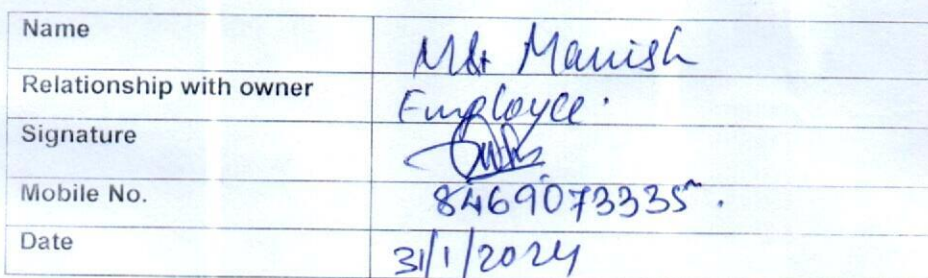 Name Mr Manish
Relationship with owner Employee.
Signature
Mobile No. 8469073335.
Date 31/1/2024